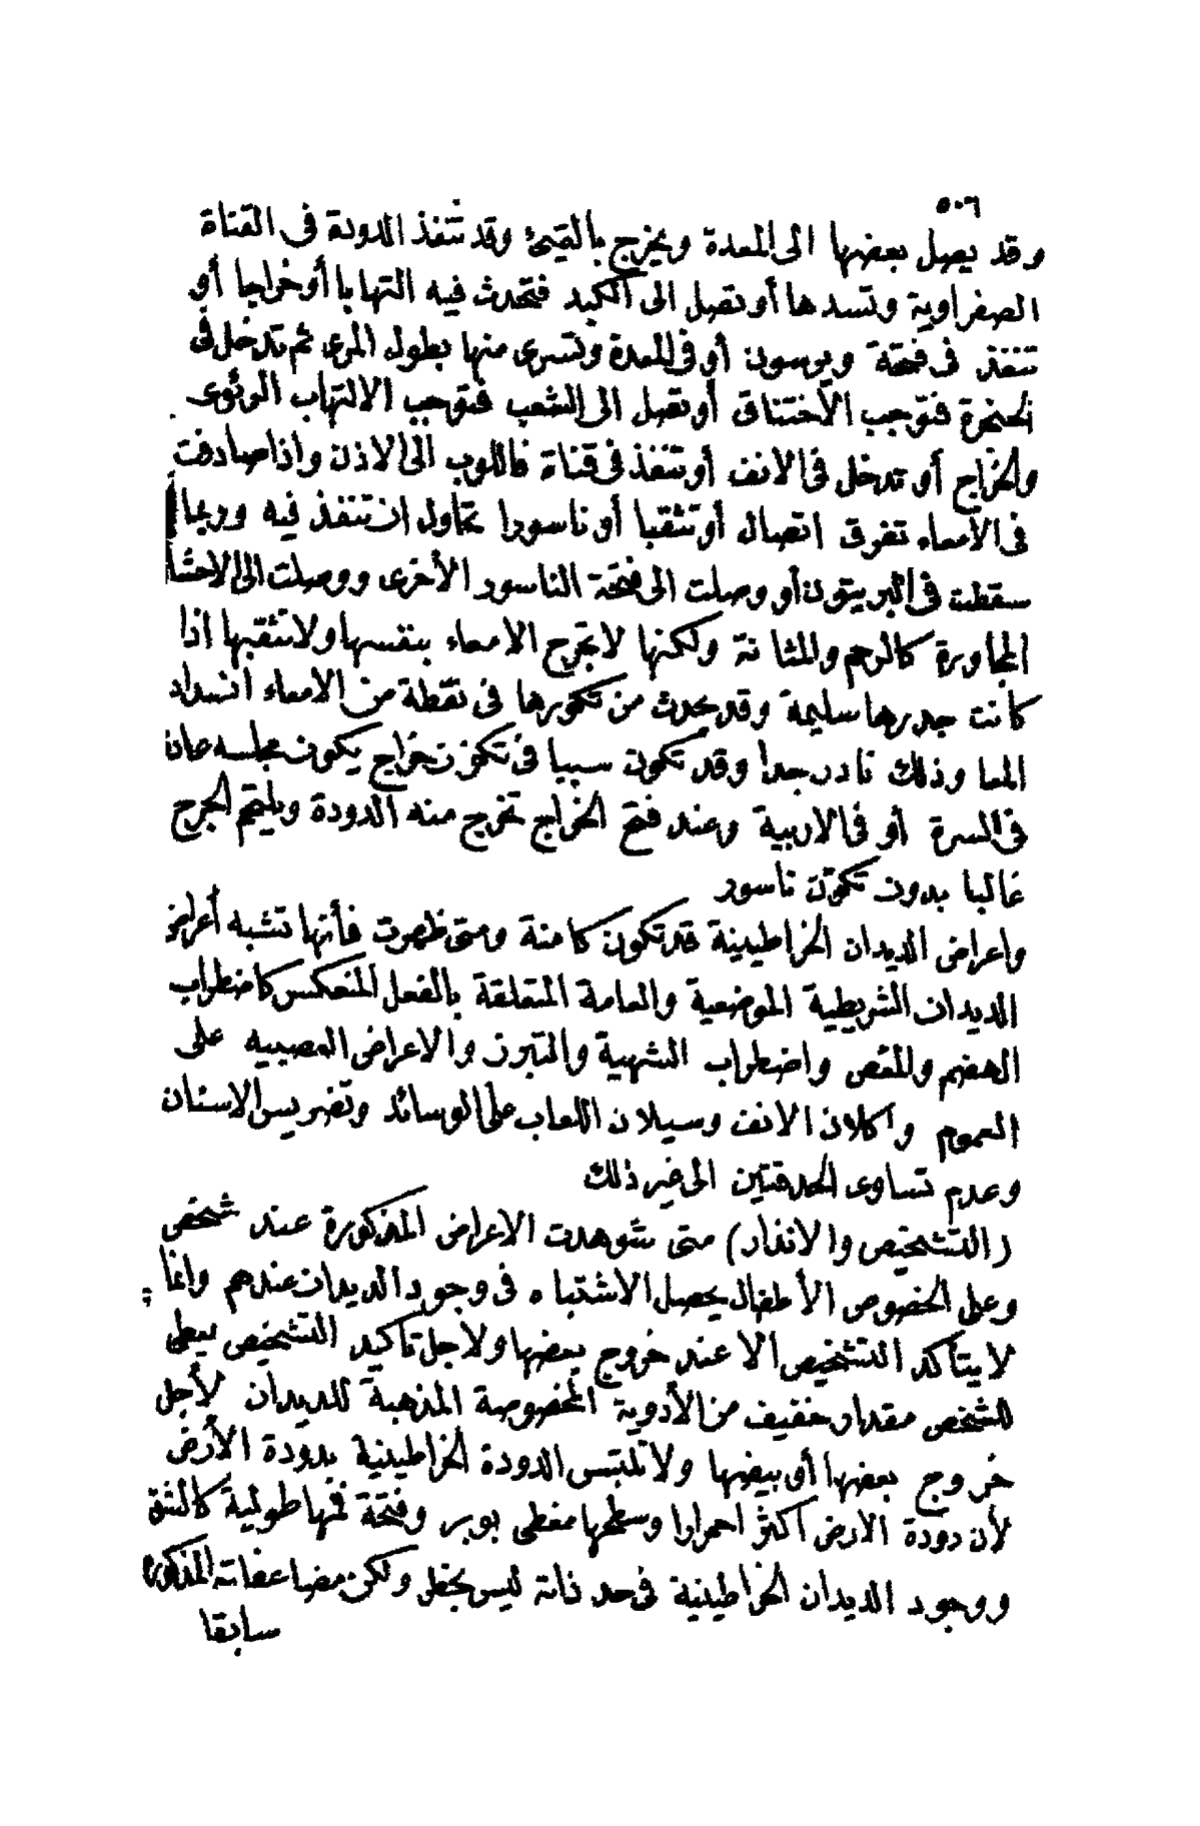 ٥٠٦
وقد يصل بعضها الى المعدة ويخرج بالقيئ وقد تنفذ الدودة فى القناة
الصفراوية وتسدها أو تصل الى الكبد فتحدث فيه التهابا أو خراجا أو
تنفذ فى فتحة ويرسون أو فى المعدة وتسرى منها بطول المرى ثم تدخل فى
الحنجرة فتوجب الاختناق أو تصل الى الشعب فتوجب الالتهاب الرئوى
والخراج أو تدخل فى الانف أو تنفذ فى قناة فاللوب الى الاذن واذا صادفت
فى الأمعاء تفرق اتصال أو تثقبا أو ناسورا تحاول ان تنفذ فيه وربما
سقطت فى البريتون أو وصلت الى فتحة الناسور الأخرى ووصلت الى الاحشا
المجاورة كالرحم والمثانة ولكنها لا تجرح الامعاء بنفسها ولا تثقبها اذا
كانت جدرها سليمة وقد يحدث من تكورها فى نقطة من الامعاء انسداد
المعا وذلك نادر جدا وقد تكون سببا فى تكون خراج يكون مجلسه
فى السرة أو فى الاربية وعند فتح الخراج تخرج منه الدودة ويلتحم الجرح
غالبا بدون تكوّن ناسور
واعراض الديدان الخراطينية قد تكون كامنة ومتى ظهرت فأنها تشبه أعراض
الديدان الشريطية الموضعية والعامة المتعلقة بالفعل المنعكس كاضطراب
الهضم والمغص واضطراب الشهية والتبرز والاعراض العصبيه على
العموم وأكلان الانف وسيلان اللعاب على الوسائد وتضريس الاسنان
وعدم تساوى الحدقتين الى غير ذلك
(التشخيص والانذار) متى شوهدت الاعراض المذكورة عند شخص
وعلى الخصوص الأطفال يحصل الاشتباه فى وجود الديدان عندهم وانما
لا يتأكد التشخيص الا عند خروج بعضها ولاجل تأكيد التشخيص يعطى
للشخص مقدار خفيف من الأدوية المخصوصة المذهبة للديدان لأجل
خروج بعضها أو بيضها ولا تلتبس الدودة الخراطينية بدودة الأرض
لأن دودة الارض أكثر احمرارا وسطحها مغطى بوبر وفتحة فمها طولية كالشق
ووجود الديدان الخراطينية فى حد ذاته ليس بخطر ولكن مضاعفاته المذكورة
سابقا